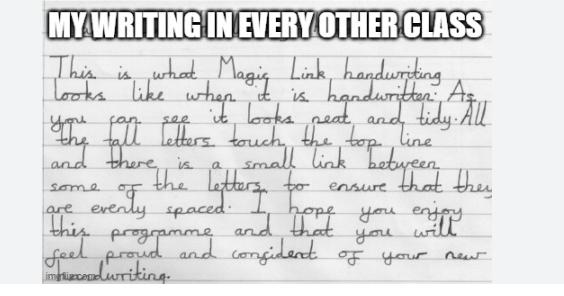 MY WRITING IN EVERY OTHER CLASS
This is what Magic Link handwriting
looks like when it is handwritten. As
you can see it looks neat and tidy. All
the tall letters touch the top line
and there is a small link between
some of the letters to ensure that they
are evenly spaced. I hope you enjoy
this programme and that you will
feel proud and confident of your new
handwriting.
imgflip.com